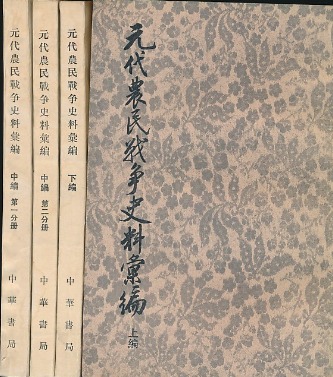 元代農民戰争史料彙編
上編
元代農民戰争史料彙編 下編
中華書局
元代農民戰争史料彙編 中編 第二分册
中華書局
元代農民戰争史料彙編 中編 第一分册
中華書局